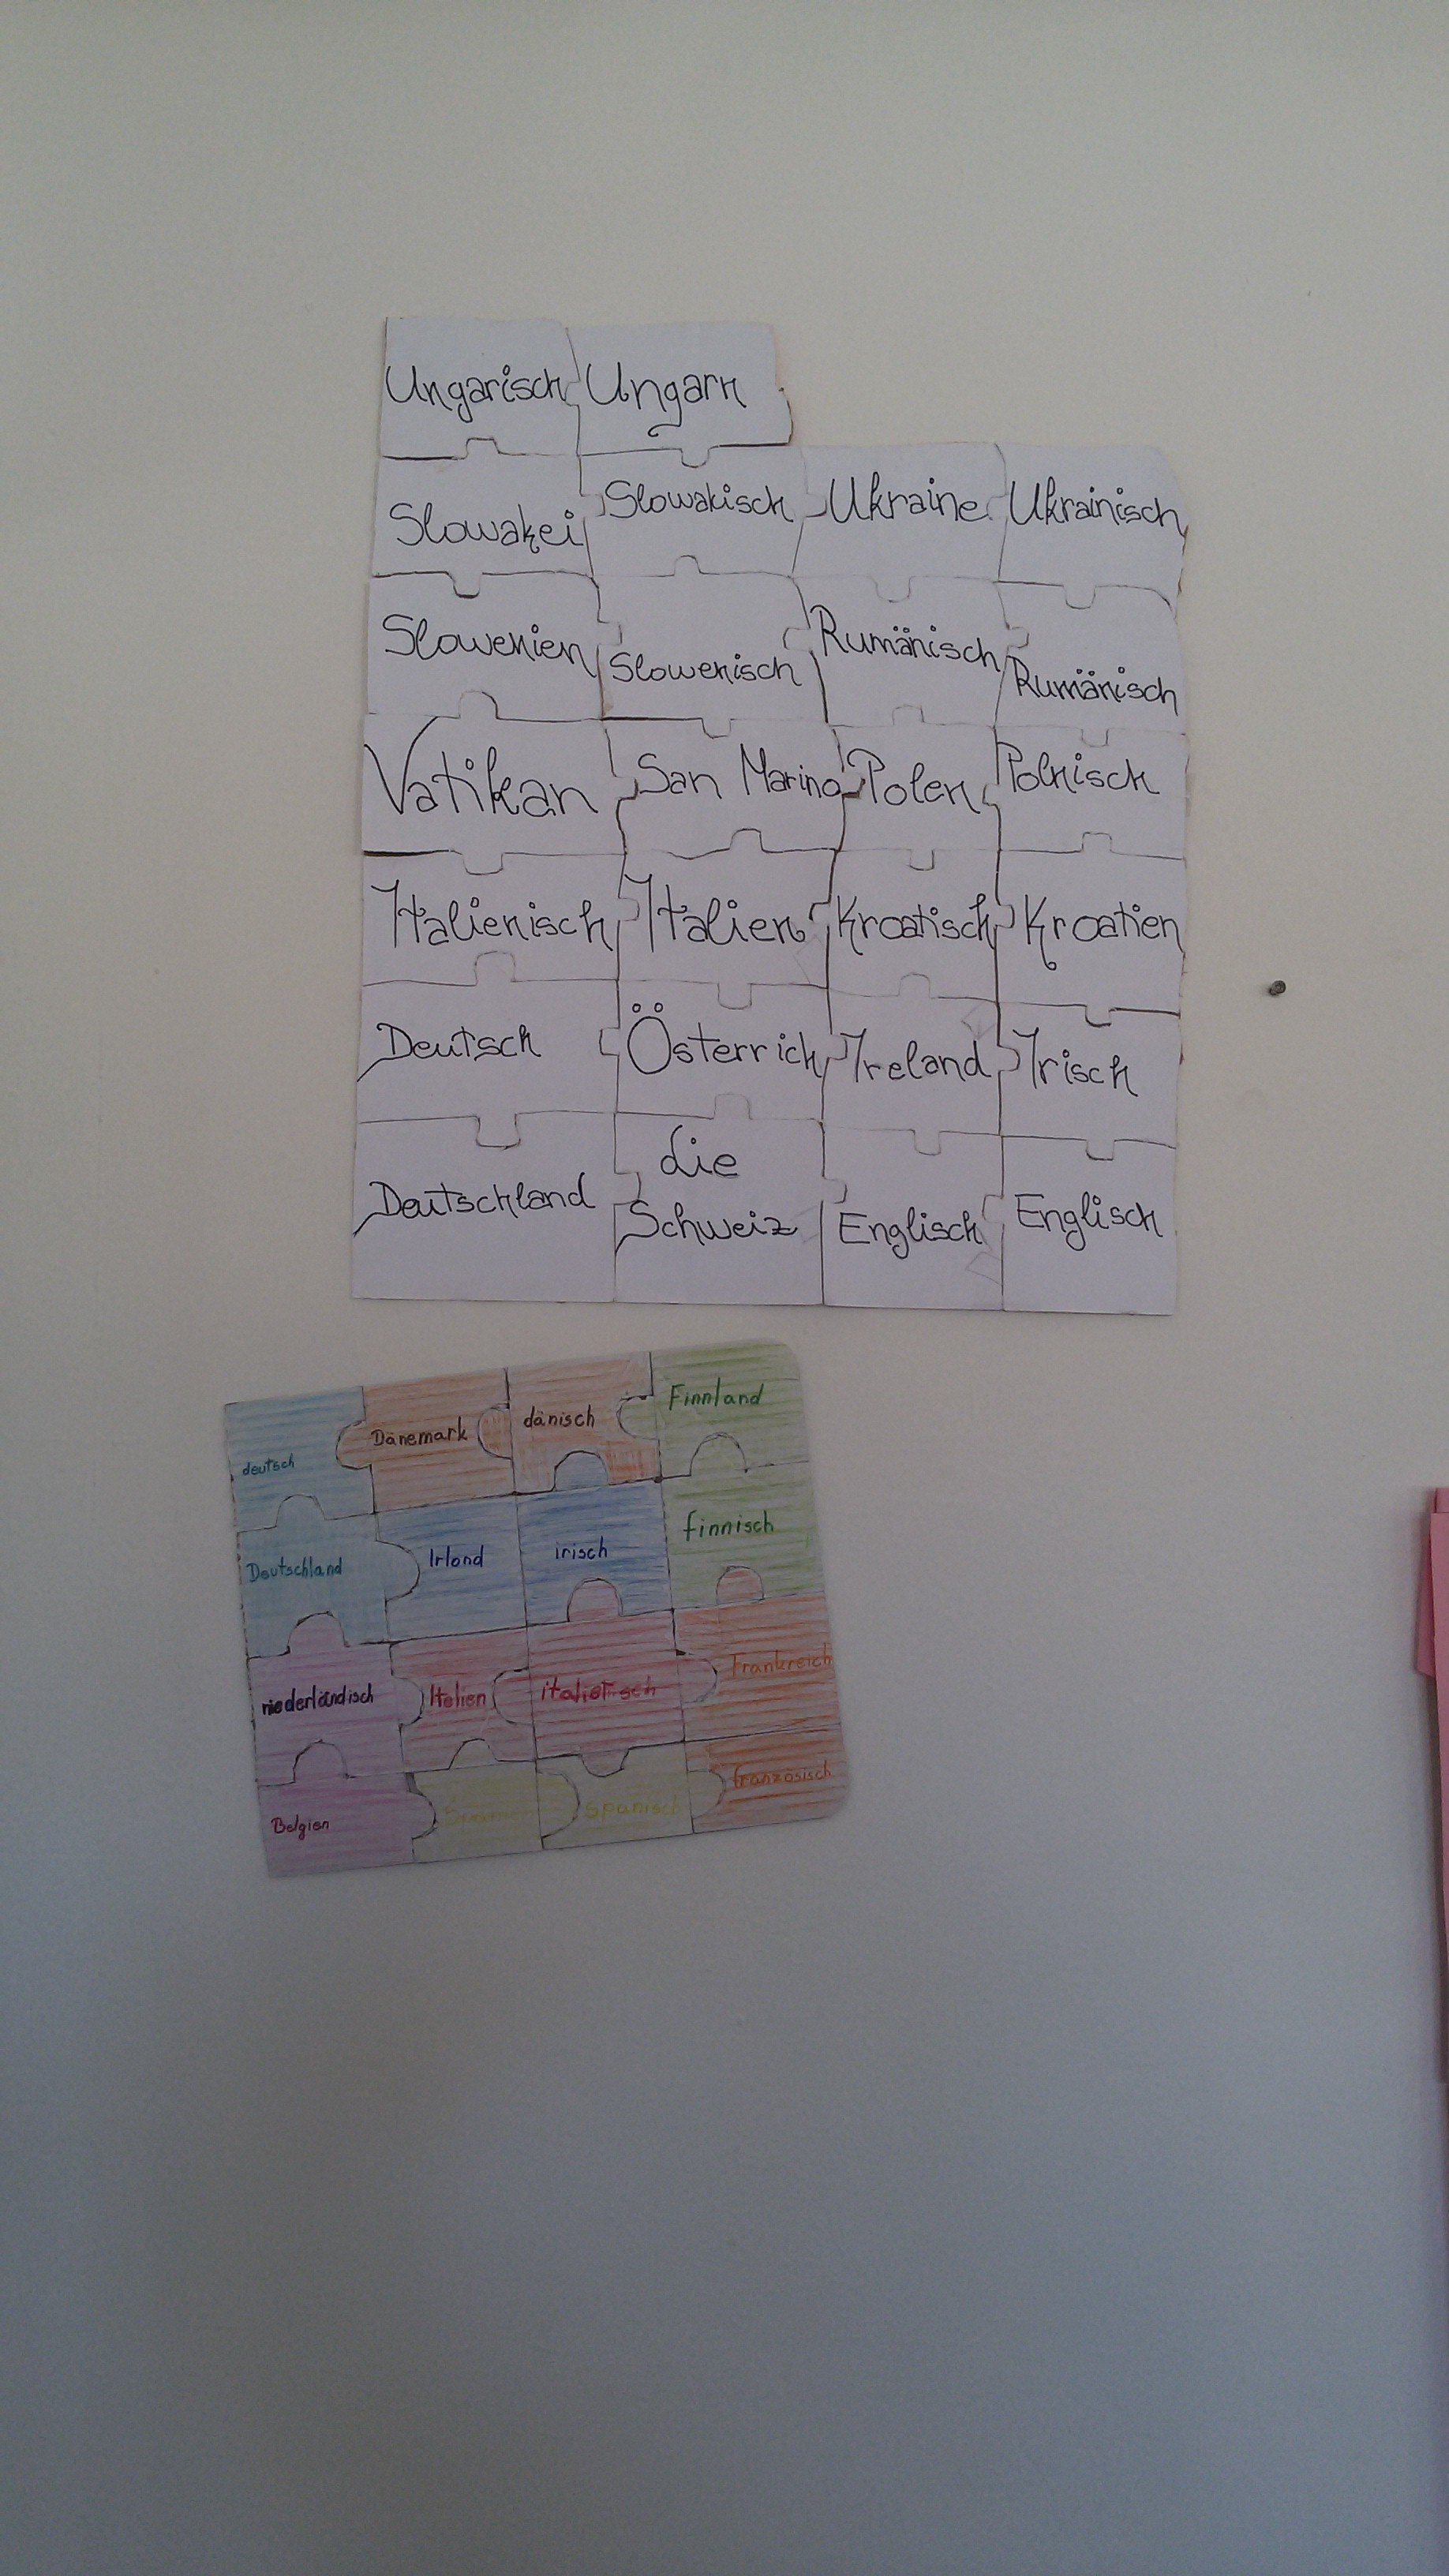 Ungarisch Ungarn
Slowakei Slowakisch Ukraine Ukrainisch
Slowenien Slowenisch Rumänisch Rumänisch
Vatikan San Marino Polen Polnisch
Italienisch Italien Kroatisch Kroatien
Deutsch Österrich Ireland Irisch
Deutschland die Schweiz Englisch Englisch
deutsch Dänemark dänisch Finnland
Deutschland Irland irisch finnisch
niederländisch Italien Frankreich
Belgien spanisch französisch